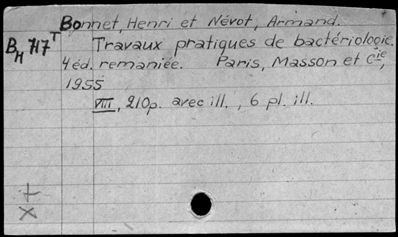 Bonnet, Henri et Névot, Armand.
BM 717T Travaux pratiques de bactériologie.
4 éd. remaniée. Paris, Masson et Cie,
1955
VIII, 210p. avec ill., 6 pl. ill.